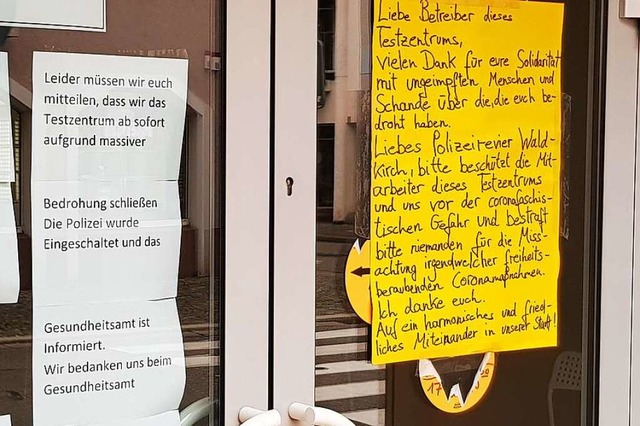 Leider müssen wir euch
mitteilen, dass wir das
Testzentrum ab sofort
aufgrund massiver
Bedrohung schließen
Die Polizei wurde
Eingeschaltet und das
Gesundheitsamt ist
Informiert.
Wir bedanken uns beim
Gesundheitsamt
Liebe Betreiber dieses
Testzentrums,
vielen Dank für eure Solidarität
mit ungeimpften Menschen und
Schande über die, die euch be-
droht haben.
Liebes Polizeirevier Wald-
kirch, bitte beschützt die Mit-
arbeiter dieses Testzentrums
und uns vor der coronafaschis-
tischen Gefahr und bestraft
bitte niemanden für die Miss-
achtung irgendwelcher freiheits-
beraubenden Coronamaßnahmen.
Ich danke euch.
Auf ein harmonisches und fried-
liches Miteinander in unserer Stadt!
17